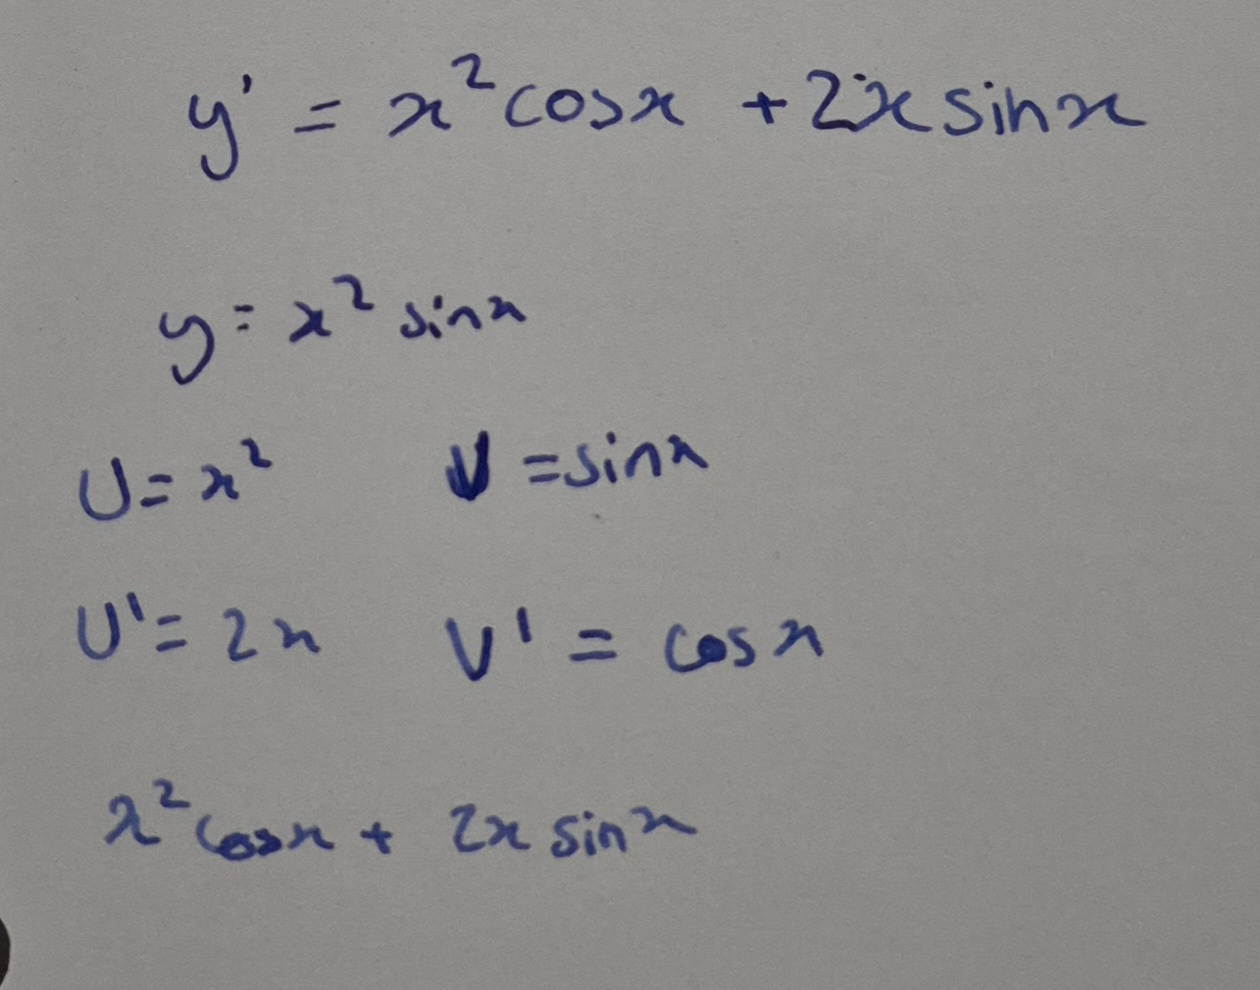 y' = x² cosx + 2x sinx
y = x² sinx
U = x² V = sinx
U' = 2x V' = cosx
x² cosx + 2x sinx